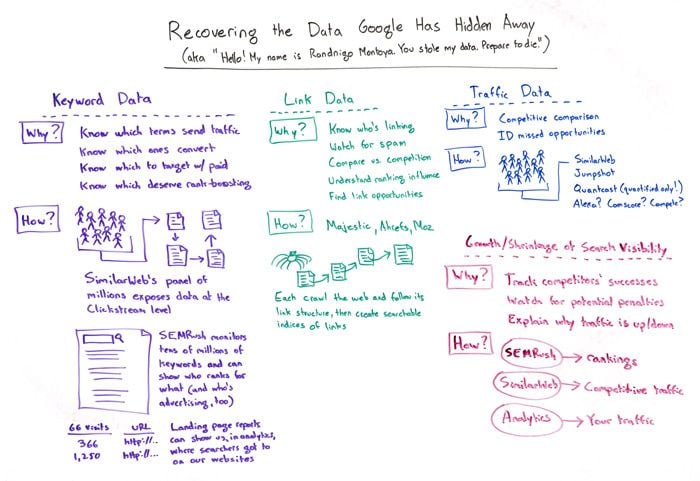 Recovering the Data Google Has Hidden Away
(aka "Hello! My name is Randnigo Montoya. You stole my data. Prepare to die.")
Keyword Data
Why?
Know which terms send traffic
Know which ones convert
Know which to target w/ paid
Know which deserve rank-boosting
How?
SimilarWeb's panel of
millions exposes data at the
Clickstream level
SEMRush monitors
tens of millions of
Keywords and can
show who ranks for
what (and who's
advertising, too)
66 visits URL
366 http://...
1,250 http://...
Landing page reports
can show us, in analytics,
where searchers got to
on our websites
Link Data
Why?
Know who's linking
Watch for spam
Compare vs. competition
Understand ranking influence
Find link opportunities
How?
Majestic, Ahrefs, Moz
Each crawl the web and follow its
link structure, then create searchable
indices of links
Traffic Data
Why?
Competitive comparison
ID missed opportunities
How?
SimilarWeb
Jumpshot
Quantcast (quantified only!)
Alexa? Comscore? Compete?
Growth/Shrinkage of Search Visibility
Why?
Track competitors' successes
Watch for potential penalties
Explain why traffic is up/down
How?
SEMRush → rankings
SimilarWeb → Competitive traffic
Analytics → Your traffic